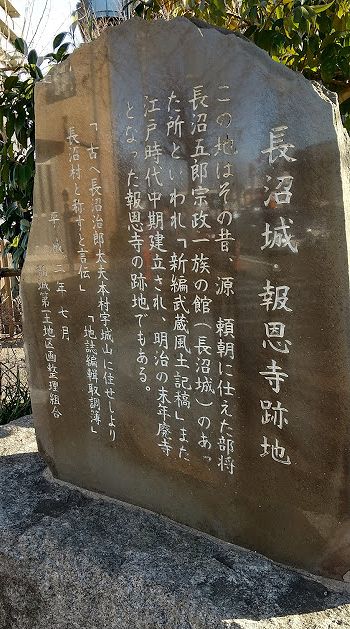 長沼城・報恩寺跡地
この地はその昔、源 頼朝に仕えた部将
長沼五郎宗政一族の館(長沼城)のあっ
た所といわれ「新編武蔵風土記稿」また
江戸時代中期建立され、明治の末年廃寺
となった報恩寺の跡地でもある。
「古へ長沼治郎太夫本村字城山に住せしより
長沼村と称すと言伝」「地誌編輯取調簿」
平成二年七月
稲城第一土地区画整理組合